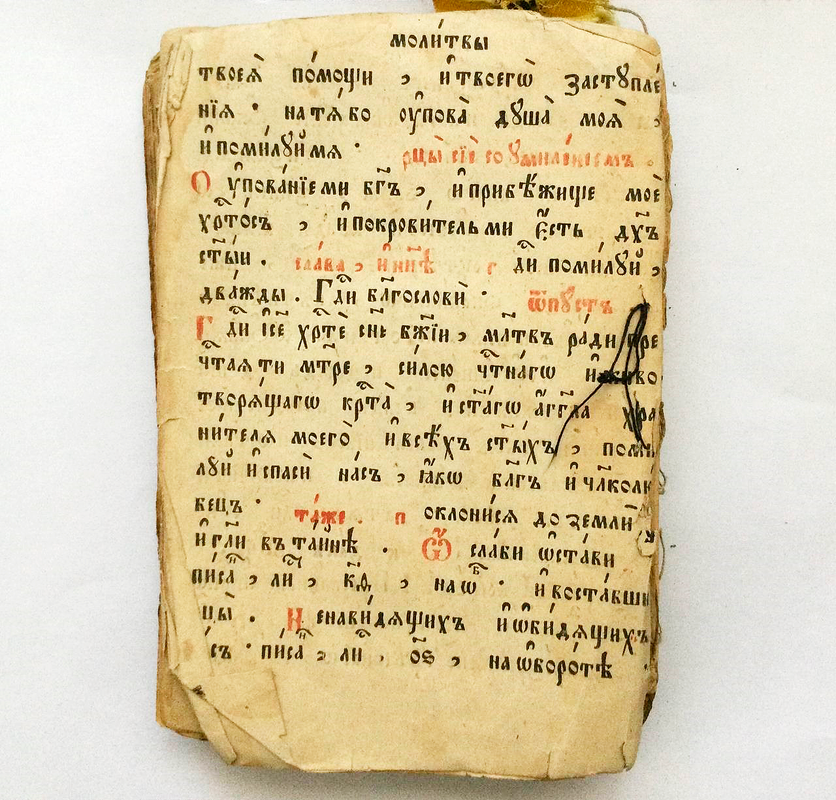 моли́твы
твоеѧ̀ по́мощи , и҆ твоегѡ̀ застꙋпле́
нїѧ · на тѧ́ бо ᲂу҆пова̀ дꙋша̀ моѧ̀ ,
и҆ поми́лꙋй мѧ · рцы̀ сїѐ со ᲂу҆миле́нїемъ .
О ᲂу҆пова́нїе ми бг҃ъ , и҆ прибѣ́жище моѐ
хрⷭ҇то́съ , и҆ покрови́тель ми є҆́сть дх҃ъ
ст҃ы́и . сла́ва , и҆ нн҃ѣ г дⷭ҇и поми́лꙋй ,
два́жды . Гдⷭ҇и бл҃гословѝ · ѿпꙋ́стъ
Гдⷭ҇и і҆се хрⷭ҇тѐ сн҃е бж҃їи , мл҃твъ ра́ди пре
чⷭ҇таѧ ти мт҃ре , си́лою чⷭ҇тна́гѡ и҆ живо
творѧ́щагѡ крⷭ҇та̀ , и҆ ст҃а́гѡ а҆́гг҃ла хра
ни́телѧ моегѡ̀ и҆ всѣ́хъ ст҃ы́хъ , поми
лꙋй и҆ спасѝ на́съ , ꙗ҆́кѡ бл҃гъ и҆ чл҃колю
бецъ · та́же . п оклони́сѧ до землѝ
и҆ гл҃и въ та́инѣ . Ѽ сла́би ѡ҆ста́ви
пи́са , ли , к҃д , на ѡб · и҆ воста́вши
цы̀ . Н енави́дѧщихъ и҆ ѡ҆би́дѧщихъ
съ · пи́са , ли . ѻ҃ѕ , на ѡ҆боро́тѣ